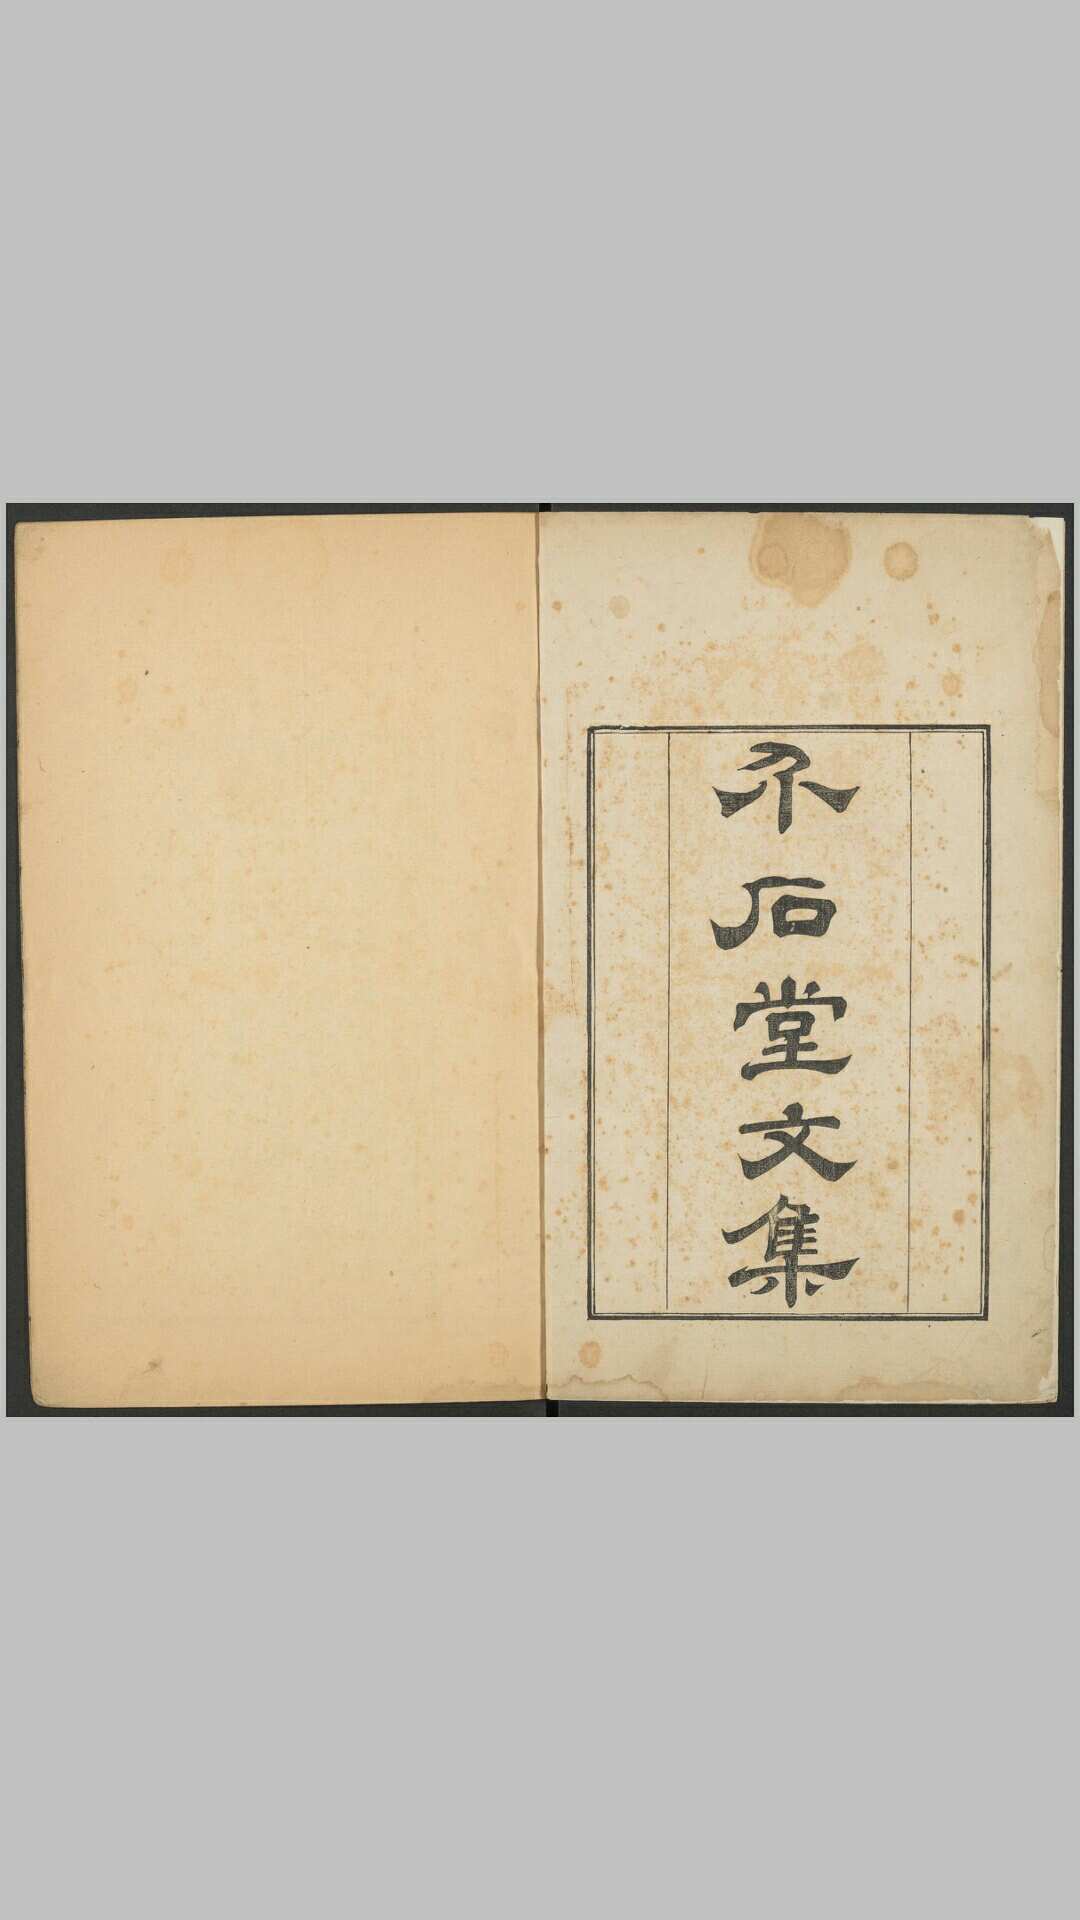 介石堂文集